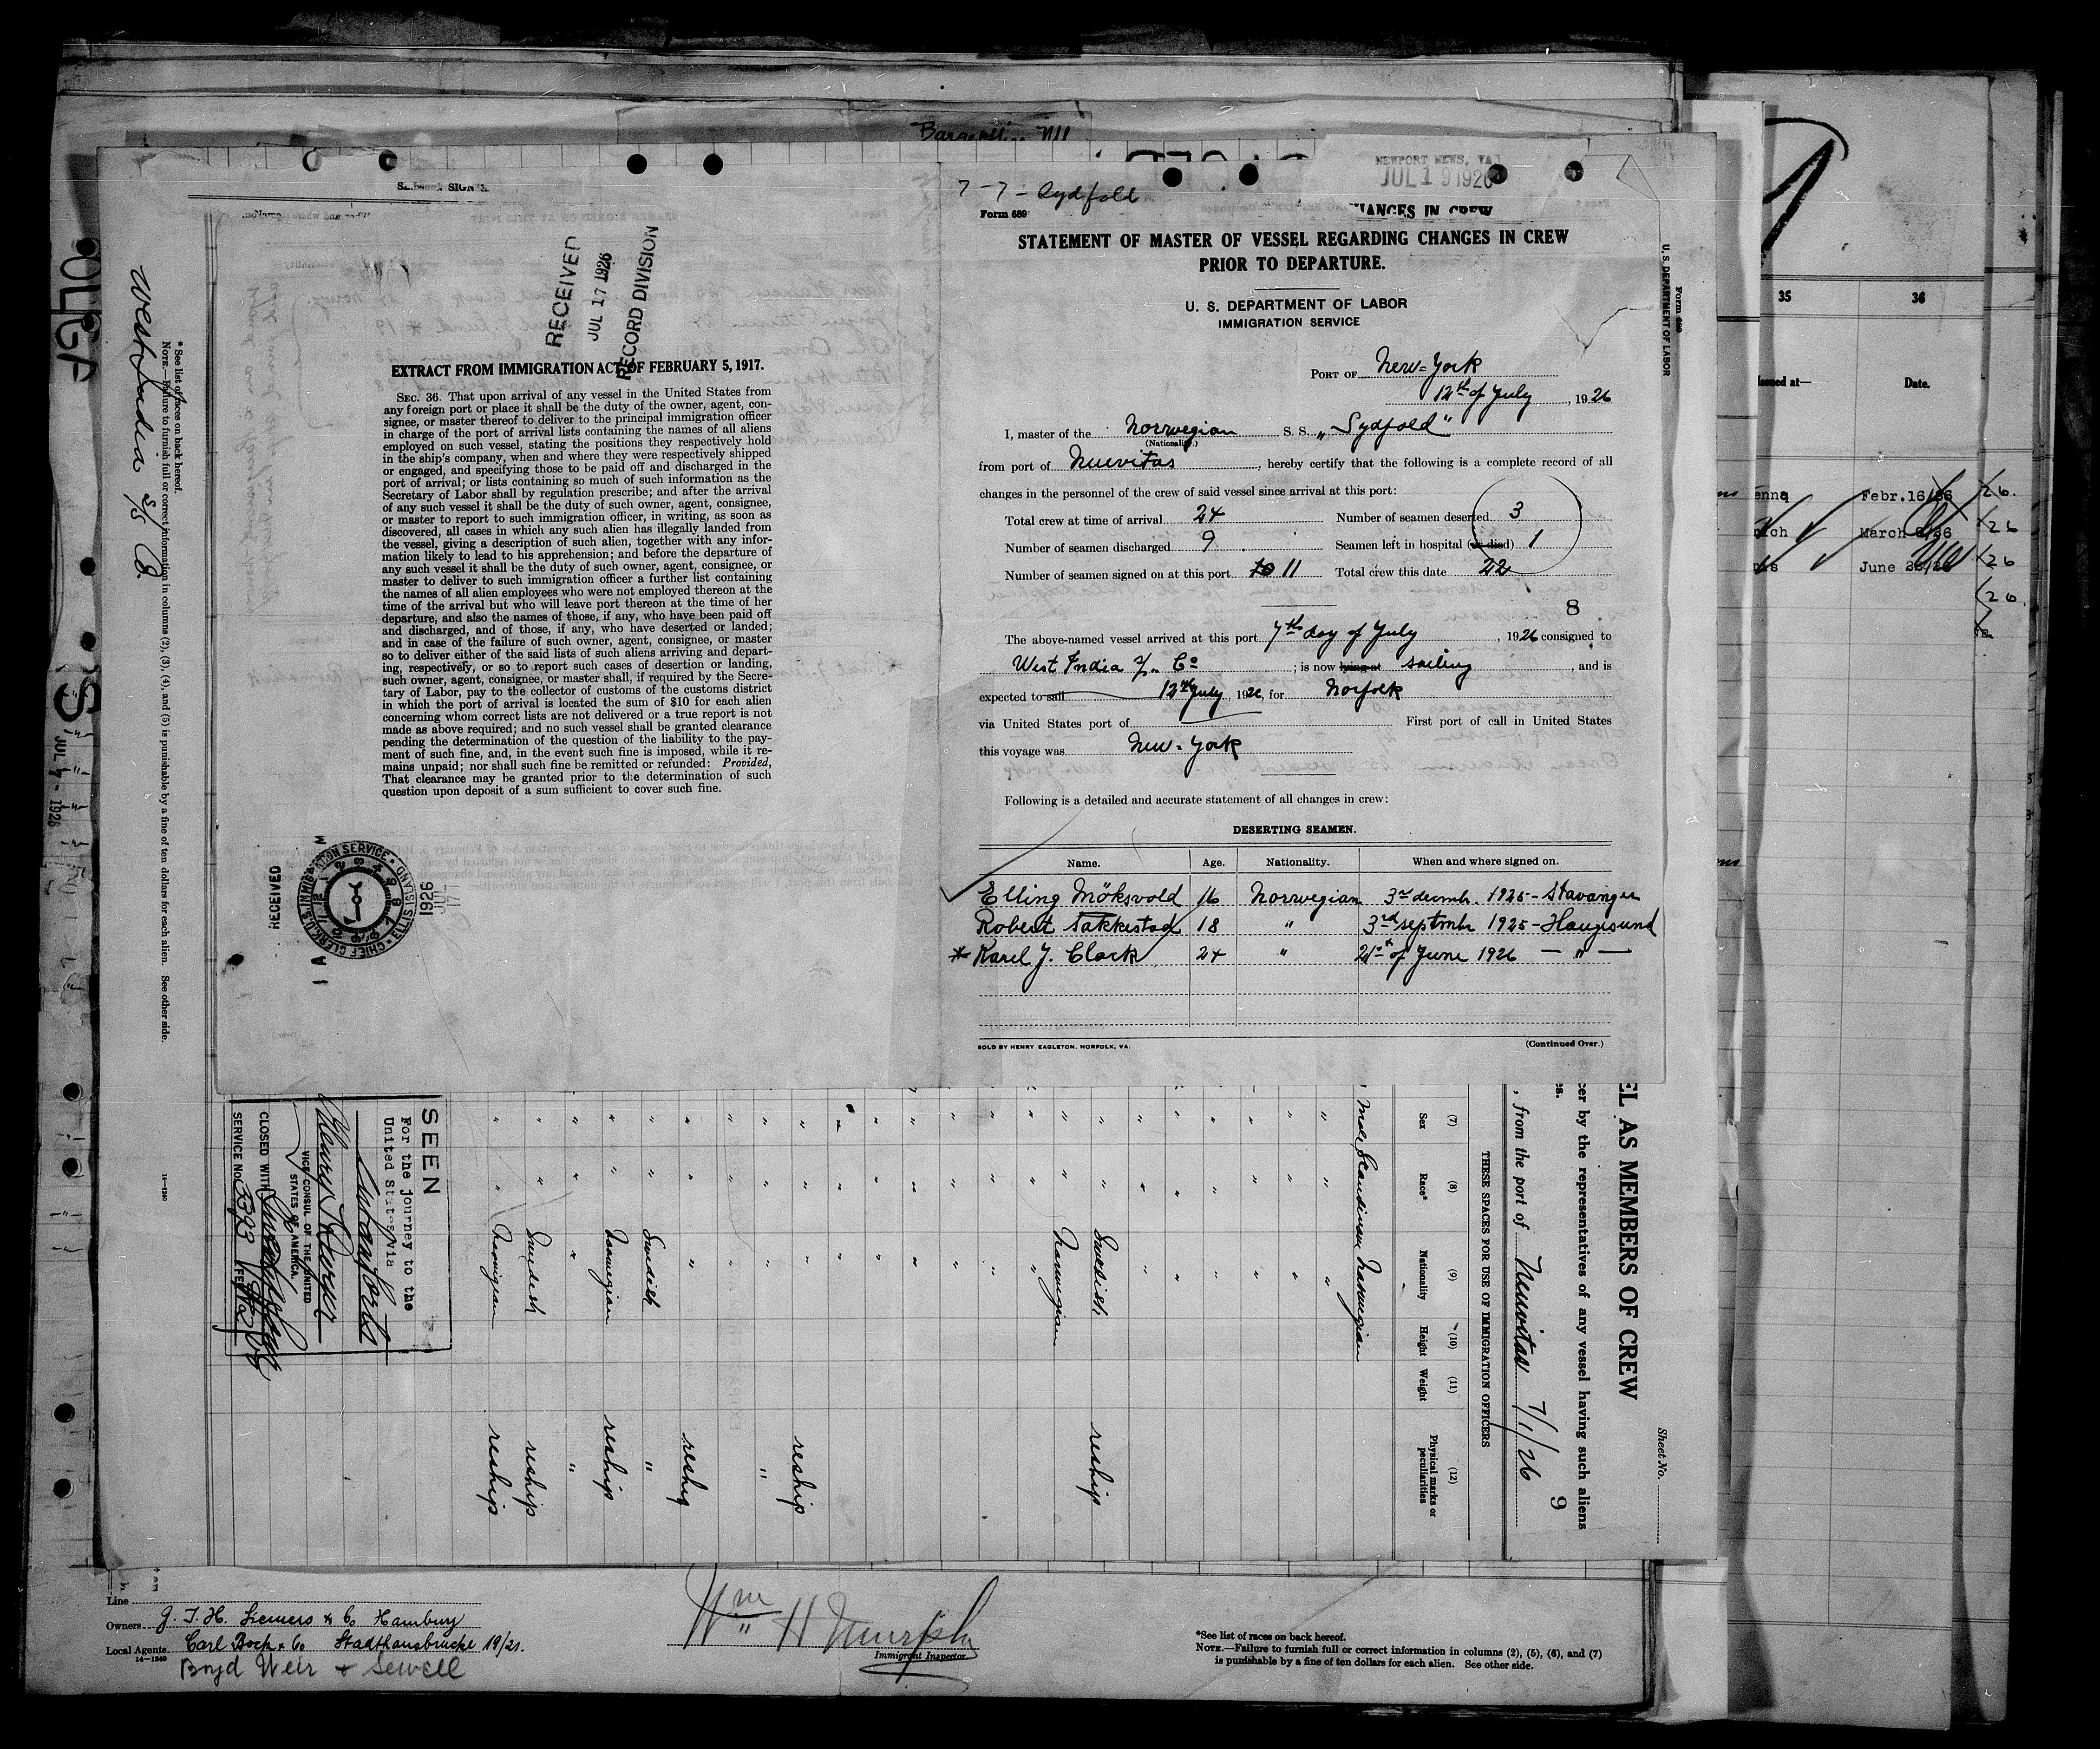 Form 689
7-7- Sydfold
NEWPORT NEWS, VA
JUL 19 1926
STATEMENT OF MASTER OF VESSEL REGARDING CHANGES IN CREW
PRIOR TO DEPARTURE.
U. S. DEPARTMENT OF LABOR
IMMIGRATION SERVICE
PORT OF New-York
12th of July, 1926
I, master of the Norwegian S. S. „Sydfold"
(Nationality.)
from port of Nuevitas, hereby certify that the following is a complete record of all
changes in the personnel of the crew of said vessel since arrival at this port:
Total crew at time of arrival 24 Number of seamen deserted 3
Number of seamen discharged 9 Seamen left in hospital (or died) 1
Number of seamen signed on at this port 11 Total crew this date 22
8
The above-named vessel arrived at this port 7th day of July, 1926 consigned to
West India Co; is now lying at sailing, and is
expected to sail 12th July, 1926, for Norfolk
via United States port of First port of call in United States
this voyage was New-York
Following is a detailed and accurate statement of all changes in crew:
DESERTING SEAMEN.
Name. Age. Nationality. When and where signed on.
Elling Möksvold 16 Norwegian 3rd decmbr. 1925 - Stavanger
Robert Takkestad 18 " 3rd septmbr 1925 - Haugesund
* Karel J. Clark 24 " 21st of June 1926 — " —
SOLD BY HENRY EAGLETON, NORFOLK, VA.
(Continued Over.)
RECEIVED
JUL 17 1926
RECORD DIVISION
EXTRACT FROM IMMIGRATION ACT OF FEBRUARY 5, 1917.
SEC. 36. That upon arrival of any vessel in the United States from
any foreign port or place it shall be the duty of the owner, agent, con-
signee, or master thereof to deliver to the principal immigration officer
in charge of the port of arrival lists containing the names of all aliens
employed on such vessel, stating the positions they respectively hold
in the ship's company, when and where they were respectively shipped
or engaged, and specifying those to be paid off and discharged in the
port of arrival; or lists containing so much of such information as the
Secretary of Labor shall by regulation prescribe; and after the arrival
of any such vessel it shall be the duty of such owner, agent, consignee,
or master to report to such immigration officer, in writing, as soon as
discovered, all cases in which any such alien has illegally landed from
the vessel, giving a description of such alien, together with any infor-
mation likely to lead to his apprehension; and before the departure of
any such vessel it shall be the duty of such owner, agent, consignee, or
master to deliver to such immigration officer a further list containing
the names of all alien employees who were not employed thereon at the
time of the arrival but who will leave port thereon at the time of her
departure, and also the names of those, if any, who have been paid off
and discharged, and of those, if any, who have deserted or landed;
and in case of the failure of such owner, agent, consignee, or master
so to deliver either of the said lists of such aliens arriving and depart-
ing, respectively, or so to report such cases of desertion or landing,
such owner, agent, consignee, or master shall, if required by the Secre-
tary of Labor, pay to the collector of customs of the customs district
in which the port of arrival is located the sum of $10 for each alien
concerning whom correct lists are not delivered or a true report is not
made as above required; and no such vessel shall be granted clearance
pending the determination of the question of the liability to the pay-
ment of such fine, and, in the event such fine is imposed, while it re-
mains unpaid; nor shall such fine be remitted or refunded: Provided,
That clearance may be granted prior to the determination of such
question upon deposit of a sum sufficient to cover such fine.
RECEIVED
CHIEF CLERK, U.S. IMMIGRATION SERVICE • ELLIS ISLAND
1926
JUL
17
West India S/S Co.
* See list of races on back hereof.
NOTE.—Failure to furnish full or correct information in columns (2), (3), (4), and (5) is punishable by a fine of ten dollars for each alien. See other side.
JUL 7 - 1926
SEEN
For the journey to the
United States via
VICE CONSUL OF THE UNITED
STATES OF AMERICA.
CLOSED WITH
SERVICE No. 3393
EL AS MEMBERS OF CREW
Sheet No.
cer by the representatives of any vessel having such aliens
, from the port of Nuevitas 7/1/26
9
THESE SPACES FOR USE OF IMMIGRATION OFFICERS
(7) (8) (9) (10) (11) (12)
Sex Race* Nationality Height Weight Physical marks or peculiarities
Male Scandinavian Norwegian
Swedish reship
Norwegian
reship
"
reship
Swedish "
Norwegian reship
" "
Swedish reship
Norwegian reship
Form 689
U. S. DEPARTMENT OF LABOR
35 36
Issued at— Date.
Febr.16/26
March
June
Line
Owners G. J. H. Siemers & Co Hamburg
Local Agents Carl Bock & Co Stadthausbrücke 19/21.
Boyd Weir & Sewell
14—1240
Wm H Murphy
Immigrant Inspector
*See list of races on back hereof.
NOTE.—Failure to furnish full or correct information in columns (2), (5), (6), and (7)
is punishable by a fine of ten dollars for each alien. See other side.